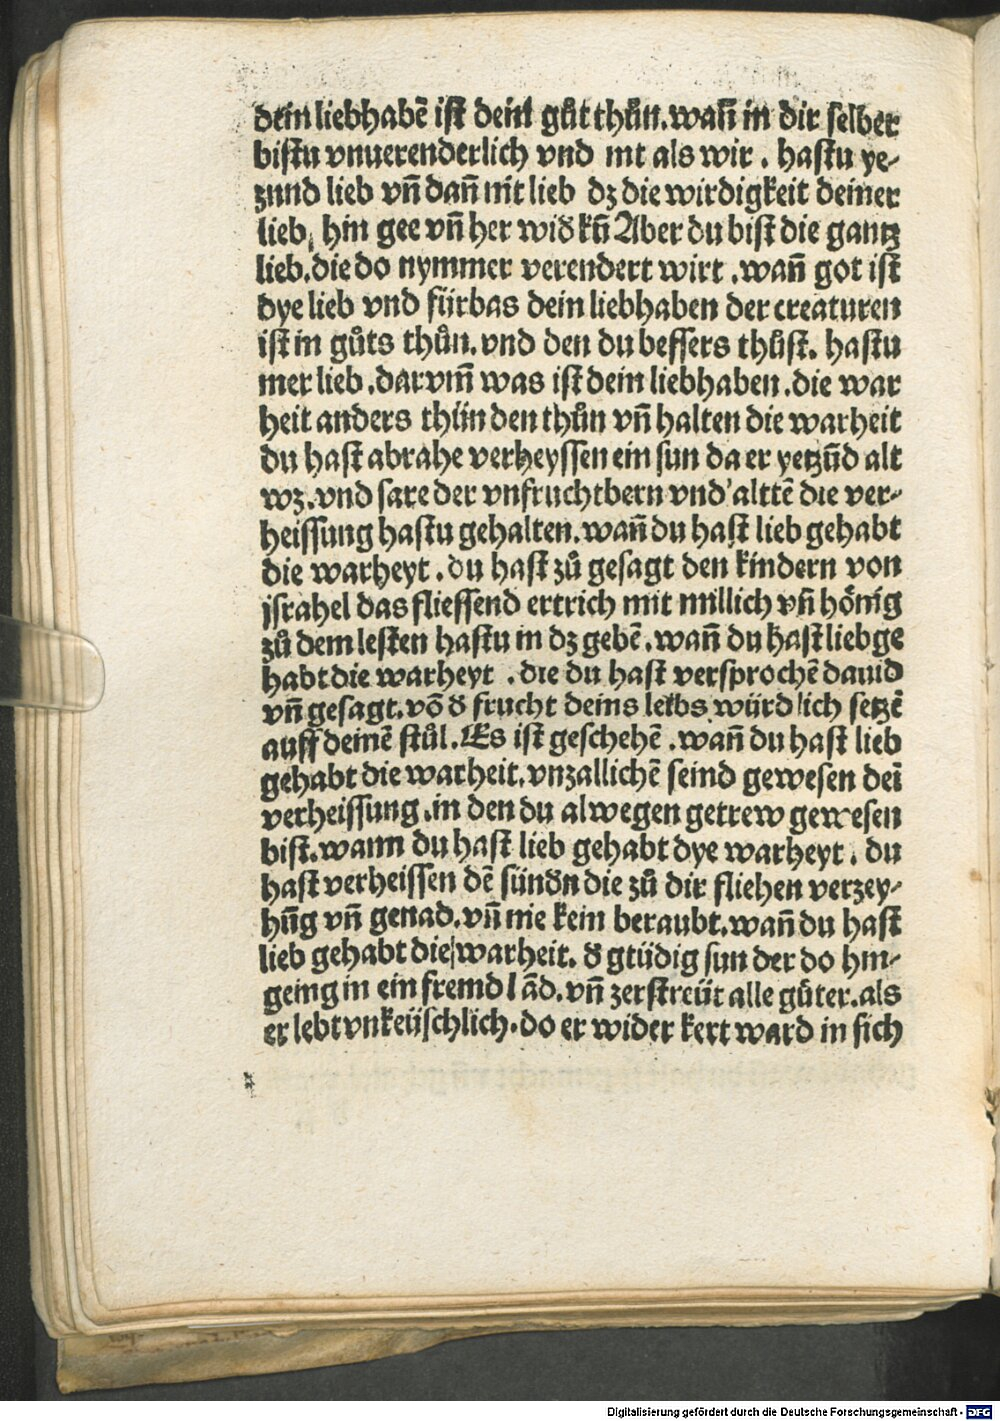 dein liebhabē ist dein gůt thůn. wañ in dir selber
bistu vnuerenderlich vnd nit als wir. hastu ye-
zund lieb vñ dañ nit lieb dz die wirdigkeit deiner
lieb, hin gee vñ her wid̕ kñ Aber du bist die gantz
lieb. die do nymmer verendert wirt. wañ got ist
dye lieb vnd fürbas dein liebhaben der creaturen
ist in gůts thůn. vnd den du bessers thůst. hastu
mer lieb. darvm̄ was ist dein liebhaben. die war
heit anders thün den thůn vñ halten die warheit
du hast abrahe verheyssen ein sun da er yetzūd alt
wz. vnd sare der vnfruchtbern vnd altē die ver-
heissung hastu gehalten. wañ du hast lieb gehabt
die warheyt. du hast zů gesagt den kindern von
jsrahel das fliessend ertrich mit millich vñ hönig
zů dem lesten hastu in dz gebē. wañ du hast liebge
habt die warheyt. die du hast versprochē dauid
vñ gesagt. vō d̕ frucht deins leibs würd ich setzē
auff deinē stůl. Es ist geschehē. wañ du hast lieb
gehabt die warheit. vnzallichē seind gewesen deī
verheissung. in den du alwegen getrew gewesen
bist. wann du hast lieb gehabt dye warheyt. du
hast verheissen dē sünd̕n die zů dir fliehen verzey-
hūg vñ genad. vñ nie kein beraubt. wañ du hast
lieb gehabt die warheit. d̕ gtüdig sun der do hin-
geing in ein fremd lād. vñ zerstreüt alle gůter. als
er lebt vnkeüschlich. do er wider kert ward in sich
Digitalisierung gefördert durch die Deutsche Forschungsgemeinschaft - DFG